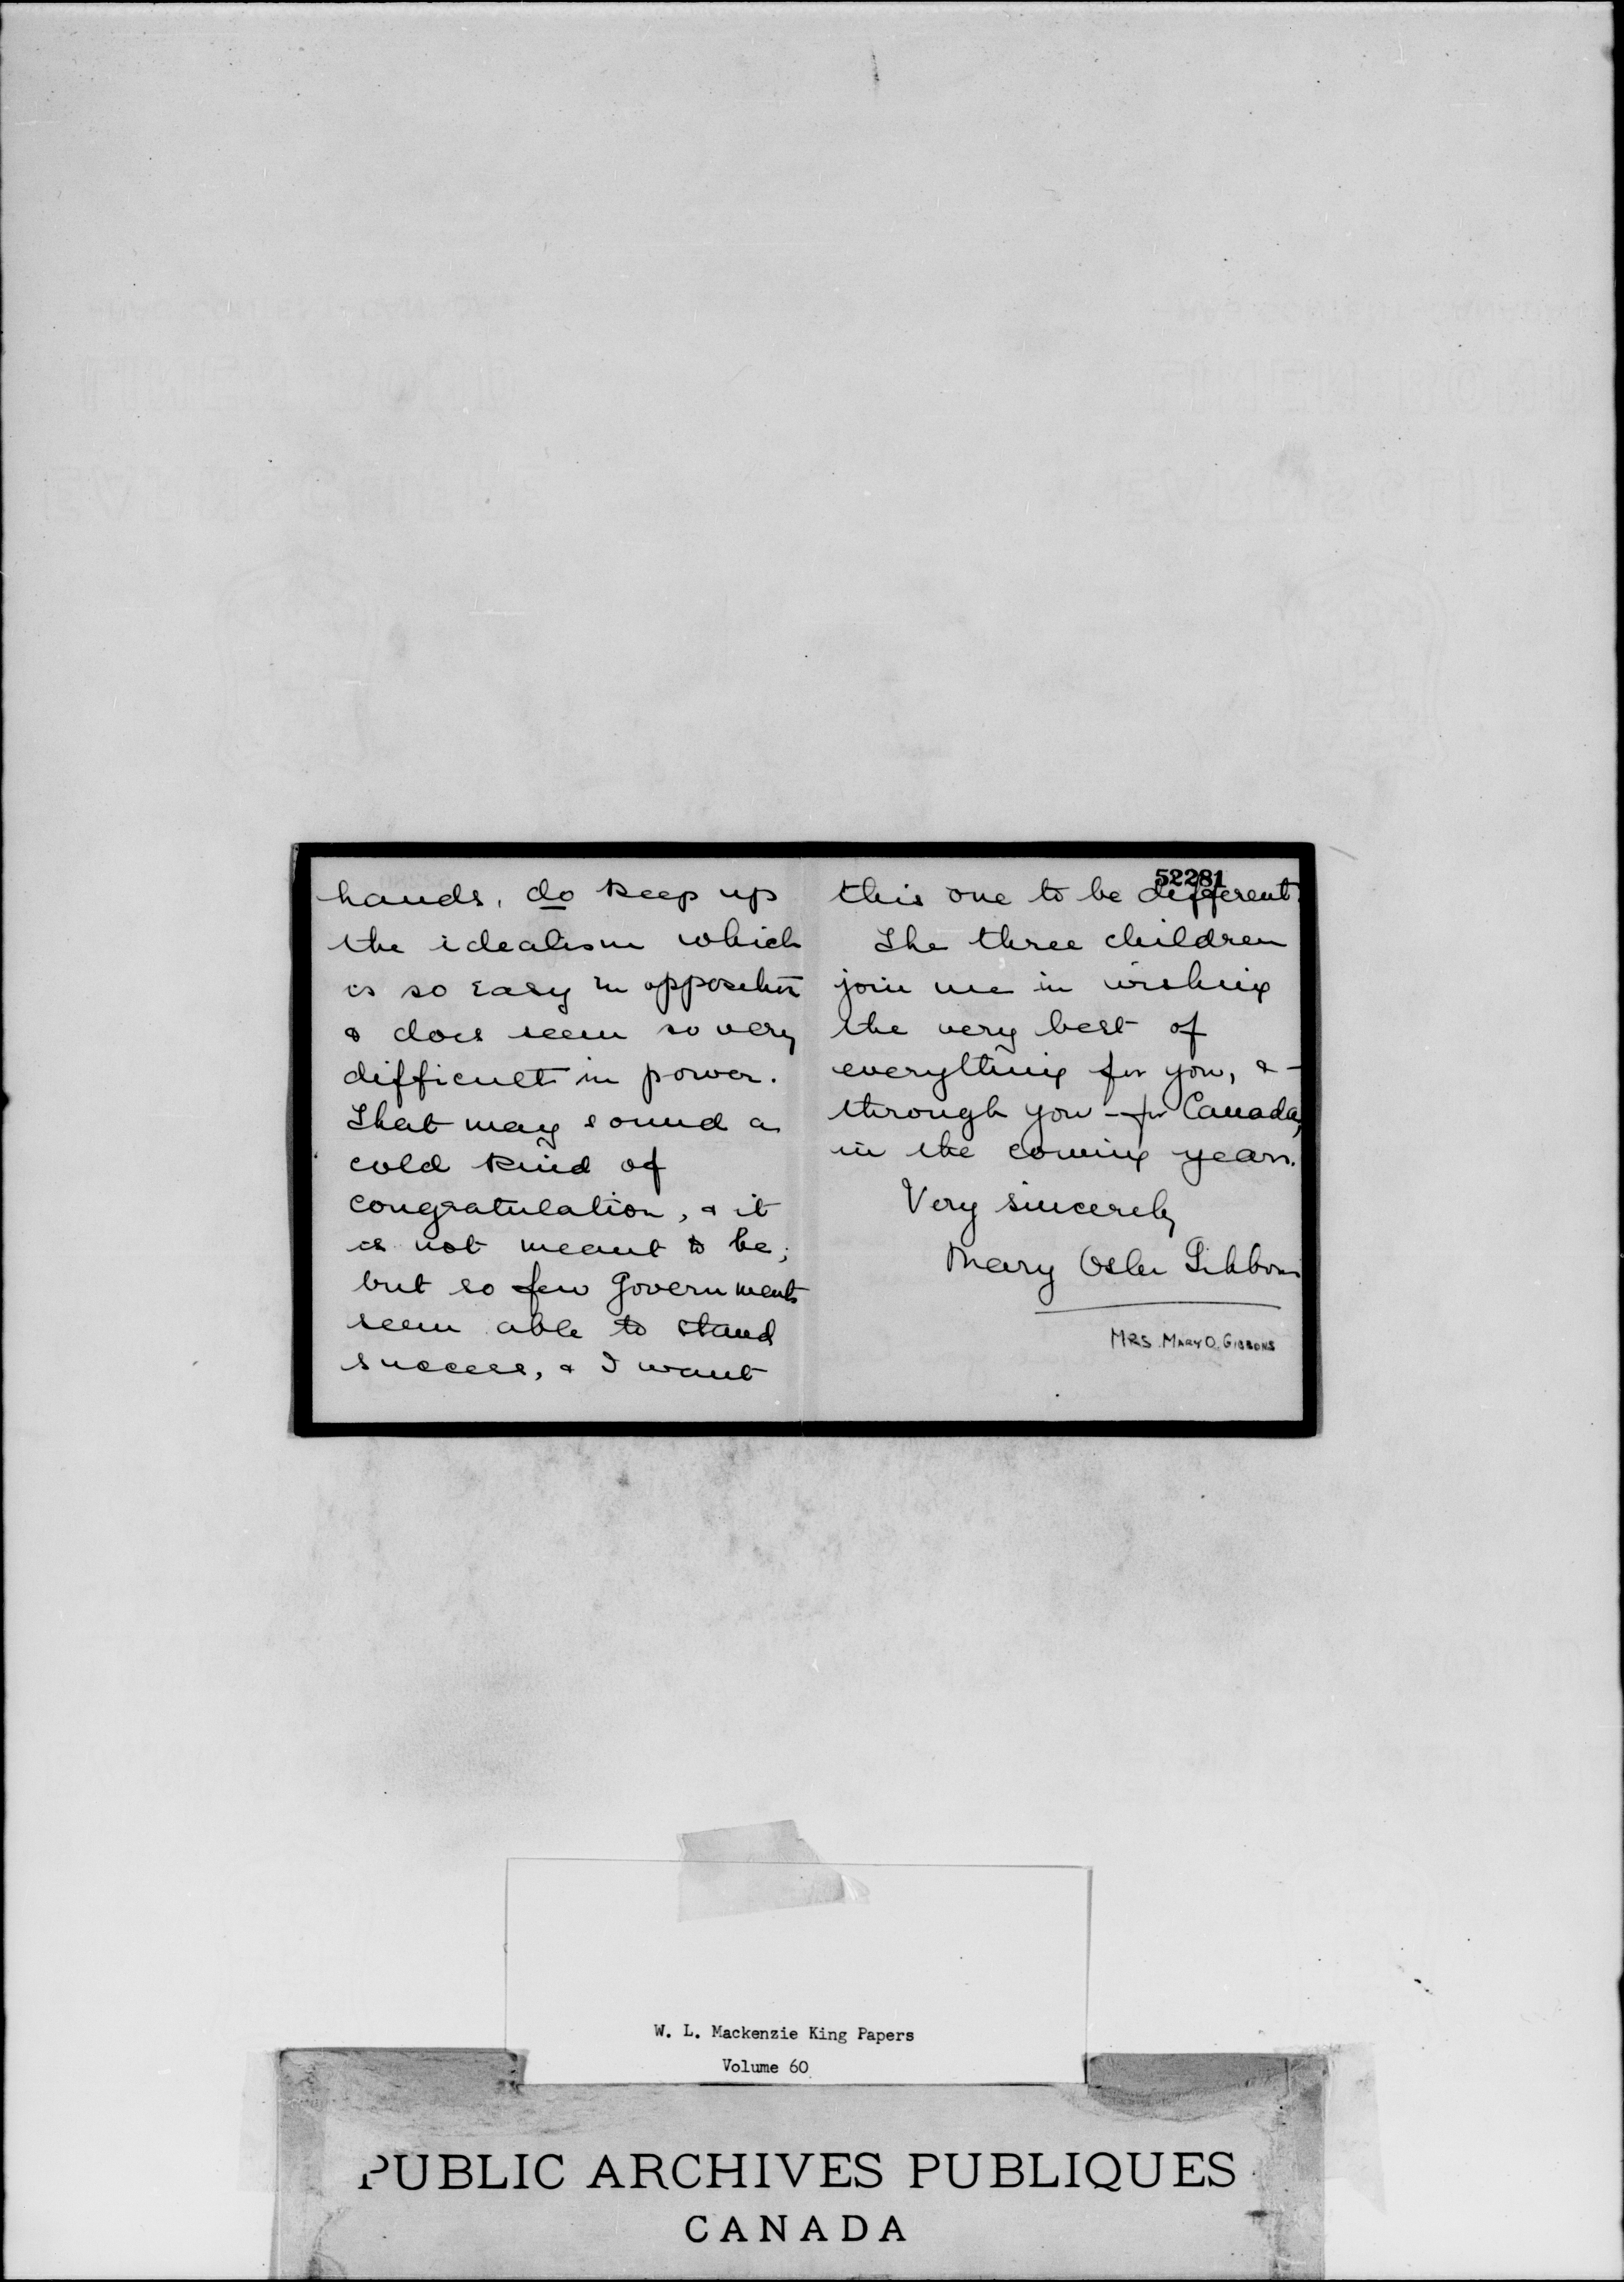 hands, do keep up
the idealism which
is so easy in opposition
& does seem so very
difficult in power.
That may sound a
cold kind of
congratulation, & it
is not meant to be;
but so few Governments
seem able to stand
success, & I want
52281
this one to be different.
The three children
join me in wishing
the very best of
everything for you, & -
through you - for Canada,
in the coming years.
Very sincerely
Mary Osler Gibbons
MRS. MARY O. GIBBONS
W. L. Mackenzie King Papers
Volume 60
PUBLIC ARCHIVES PUBLIQUES
CANADA